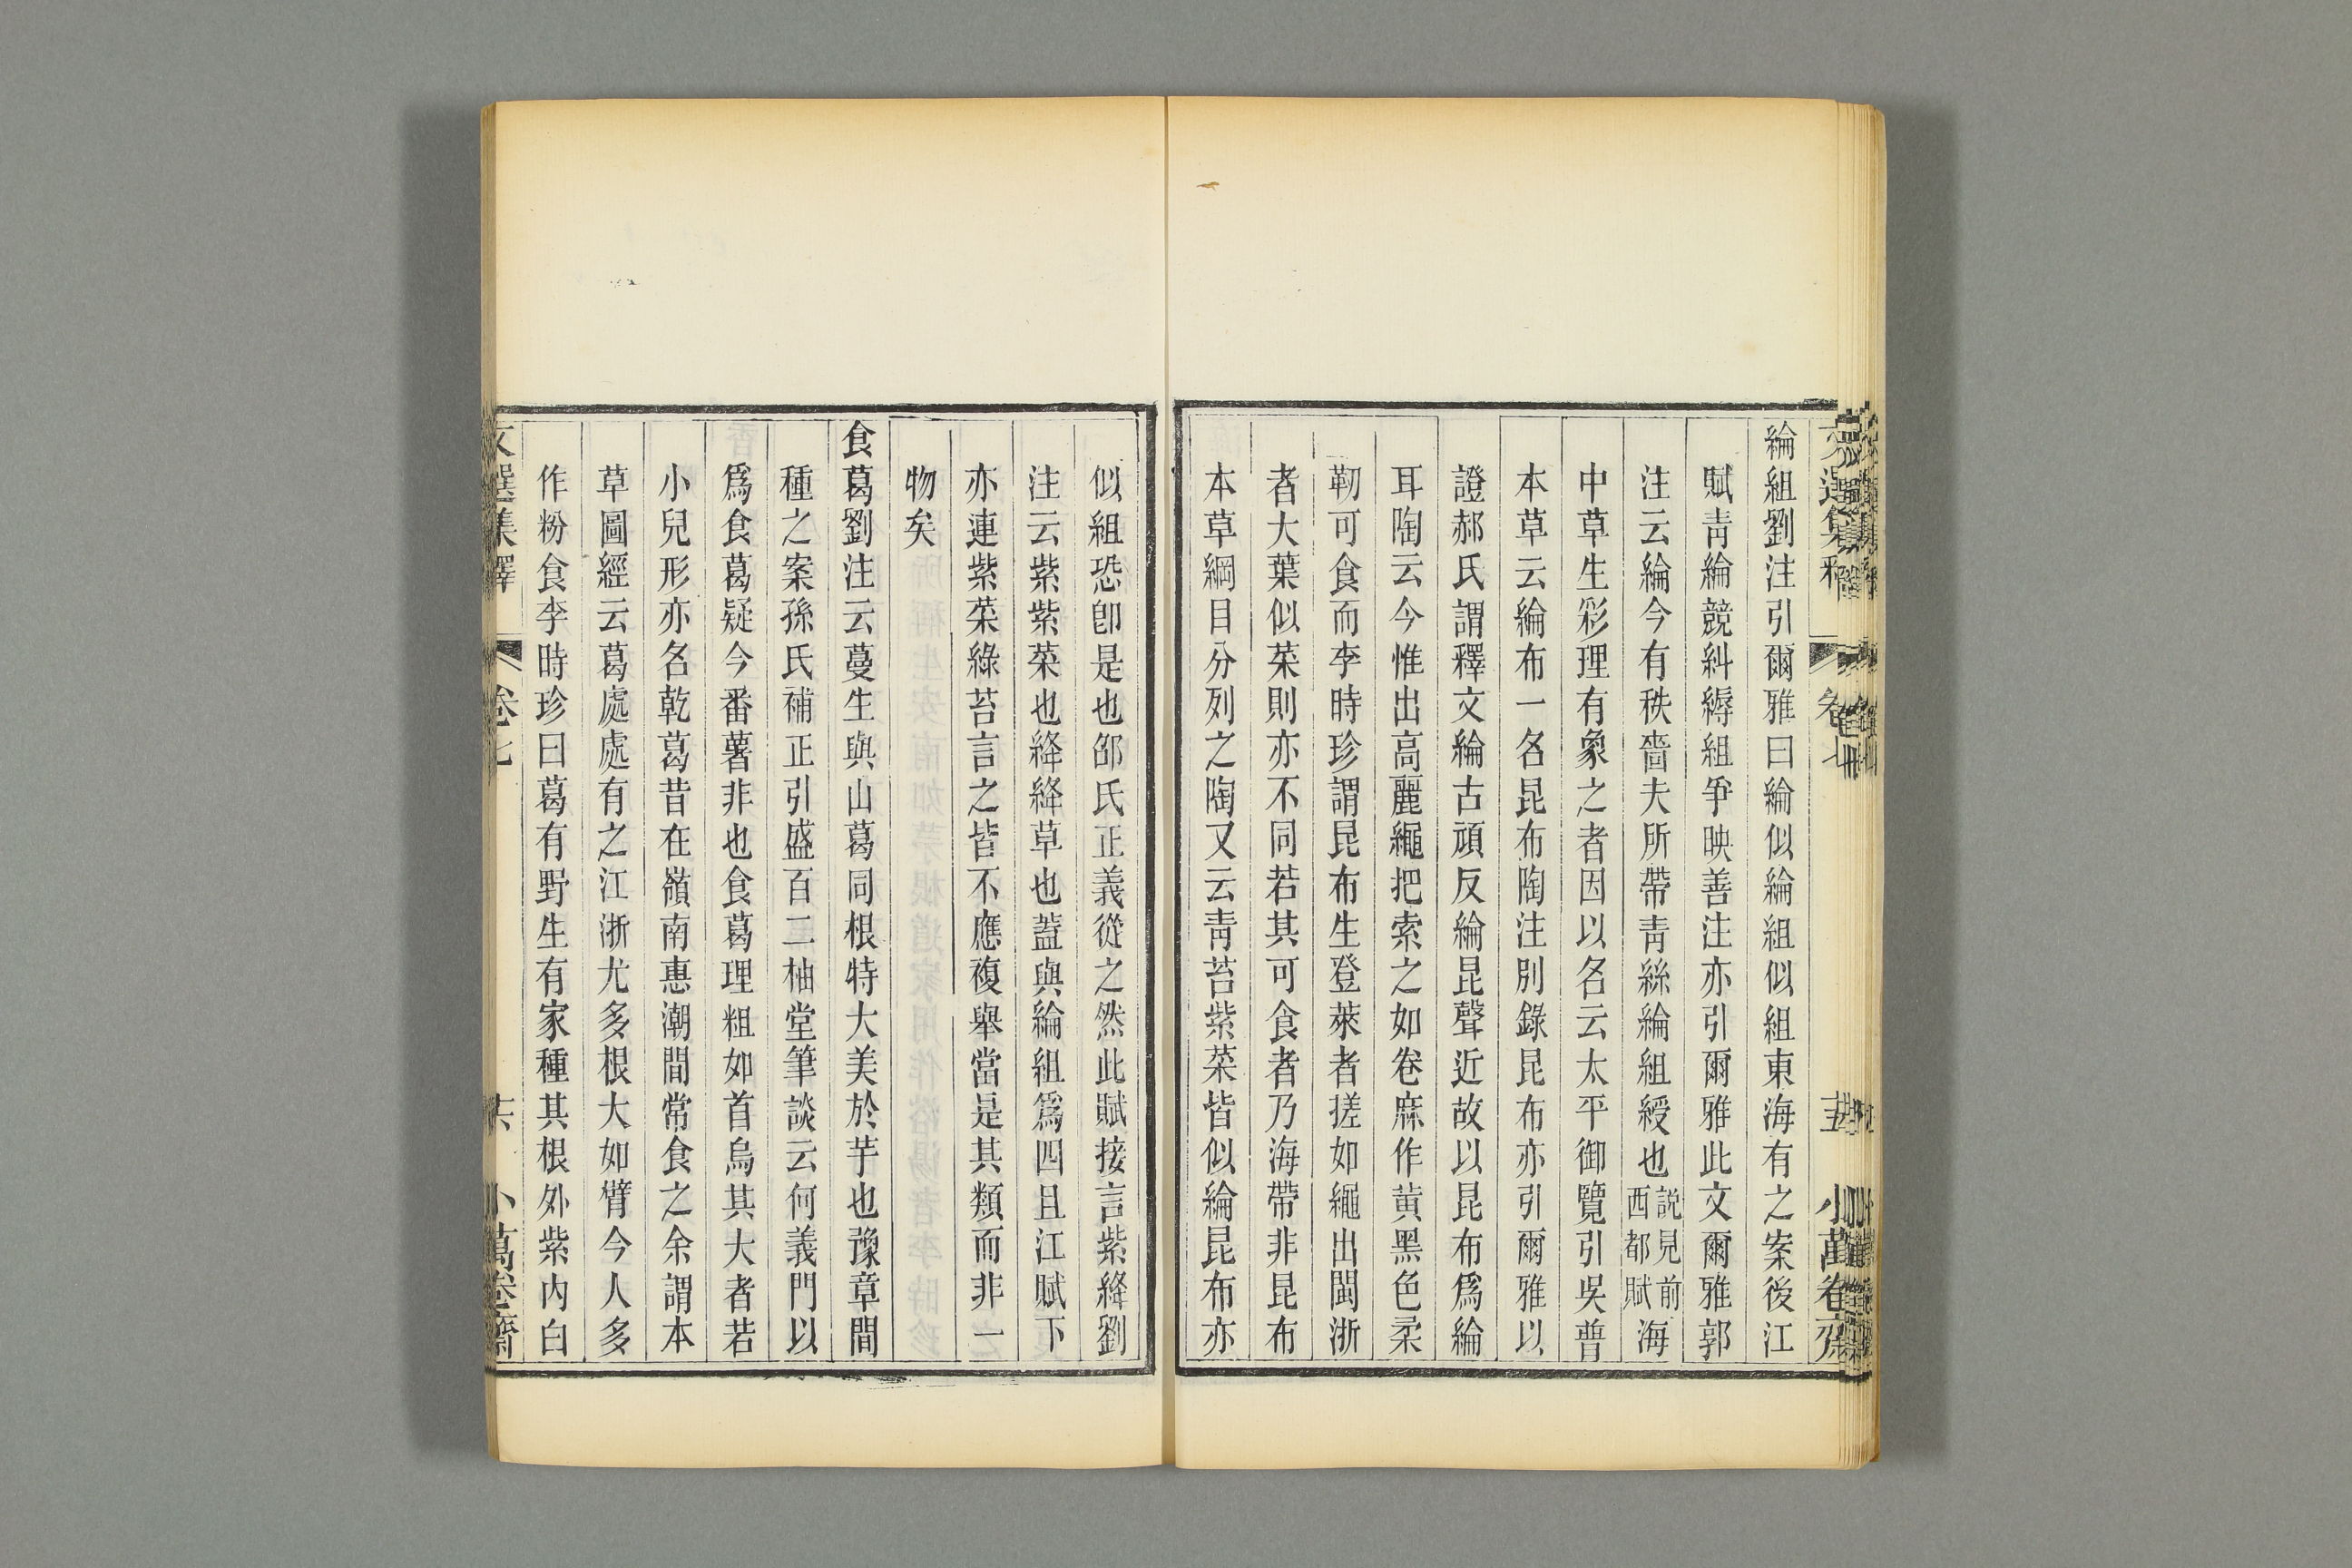 綸組劉注引爾雅曰綸似綸組似組東海有之案後江
賦青綸競糾縟組爭映善注亦引爾雅此文爾雅郭
注云綸今有秩嗇夫所帶青絲綸組綬也說見前西都賦海
中草生彩理有象之者因以名云太平御覽引吳普
本草云綸布一名昆布陶注別錄昆布亦引爾雅以
證郝氏謂釋文綸古頑反綸昆聲近故以昆布爲綸
耳陶云今惟出高麗繩把索之如卷麻作黃黑色柔
靭可食而李時珍謂昆布生登萊者搓如繩出閩浙
者大葉似菜則亦不同若其可食者乃海帶非昆布
本草綱目分列之陶又云青苔紫菜皆似綸昆布亦
似組恐卽是也邵氏正義從之然此賦接言紫絳劉
注云紫紫菜也絳絳草也葢與綸組爲四且江賦下
亦連紫菜綠苔言之皆不應複舉當是其類而非一
物矣
食葛劉注云蔓生與山葛同根特大美於芋也豫章間
種之案孫氏補正引盛百二柚堂筆談云何義門以
爲食葛疑今番薯非也食葛理粗如首烏其大者若
小兒形亦名乾葛昔在嶺南惠潮間常食之余謂本
草圖經云葛處處有之江浙尤多根大如臂今人多
作粉食李時珍曰葛有野生有家種其根外紫內白
文選集釋
卷七
小萬卷齋